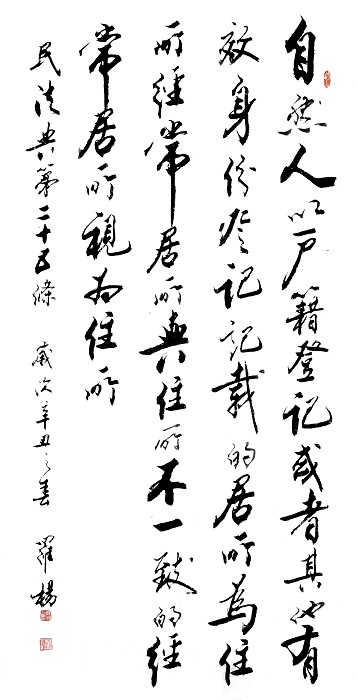 自然人以户籍登记或者其他有
效身份登记记载的居所为住
所經常居所與住所不一致的經
常居所視為住所
民法典第二十五條 歲次辛丑之春 羅楊